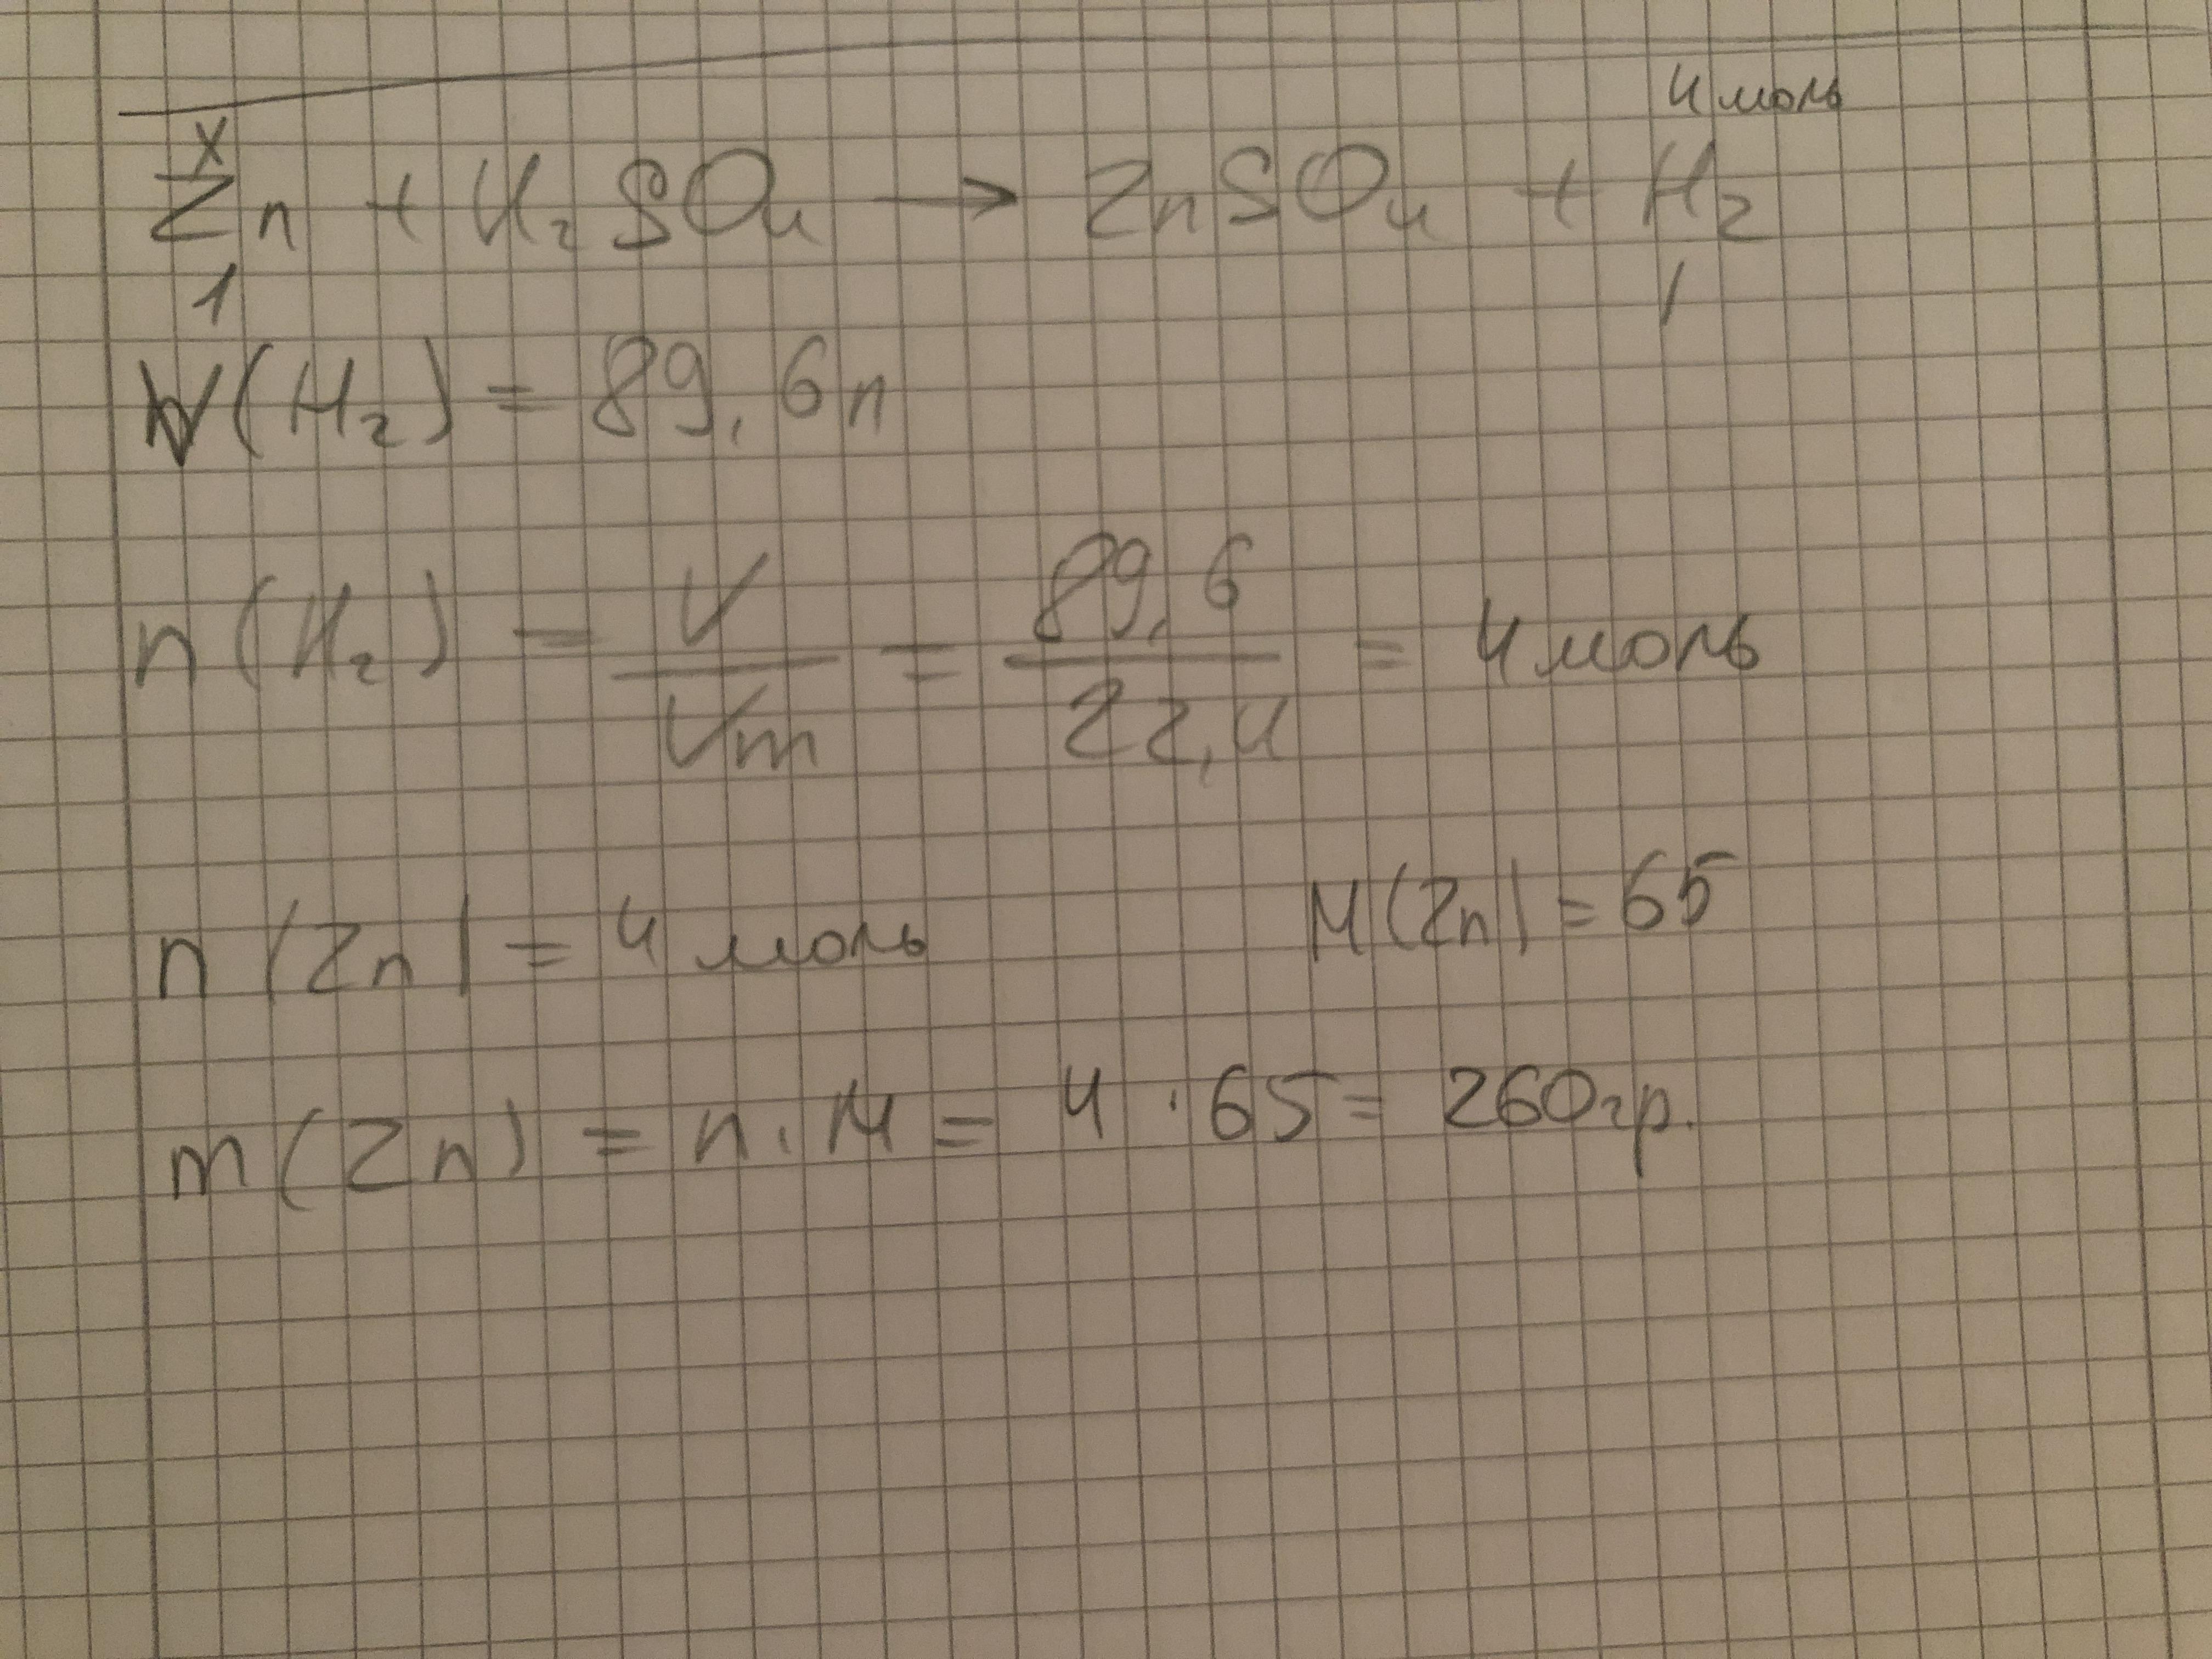 4 моль
x
Zn + H₂SO₄ → ZnSO₄ + H₂
1 1
V(H₂) = 89,6л
n(H₂) = V/Vm = 89,6/22,4 = 4 моль
n(Zn) = 4 моль M(Zn) = 65
m(Zn) = n · M = 4 · 65 = 260гр.